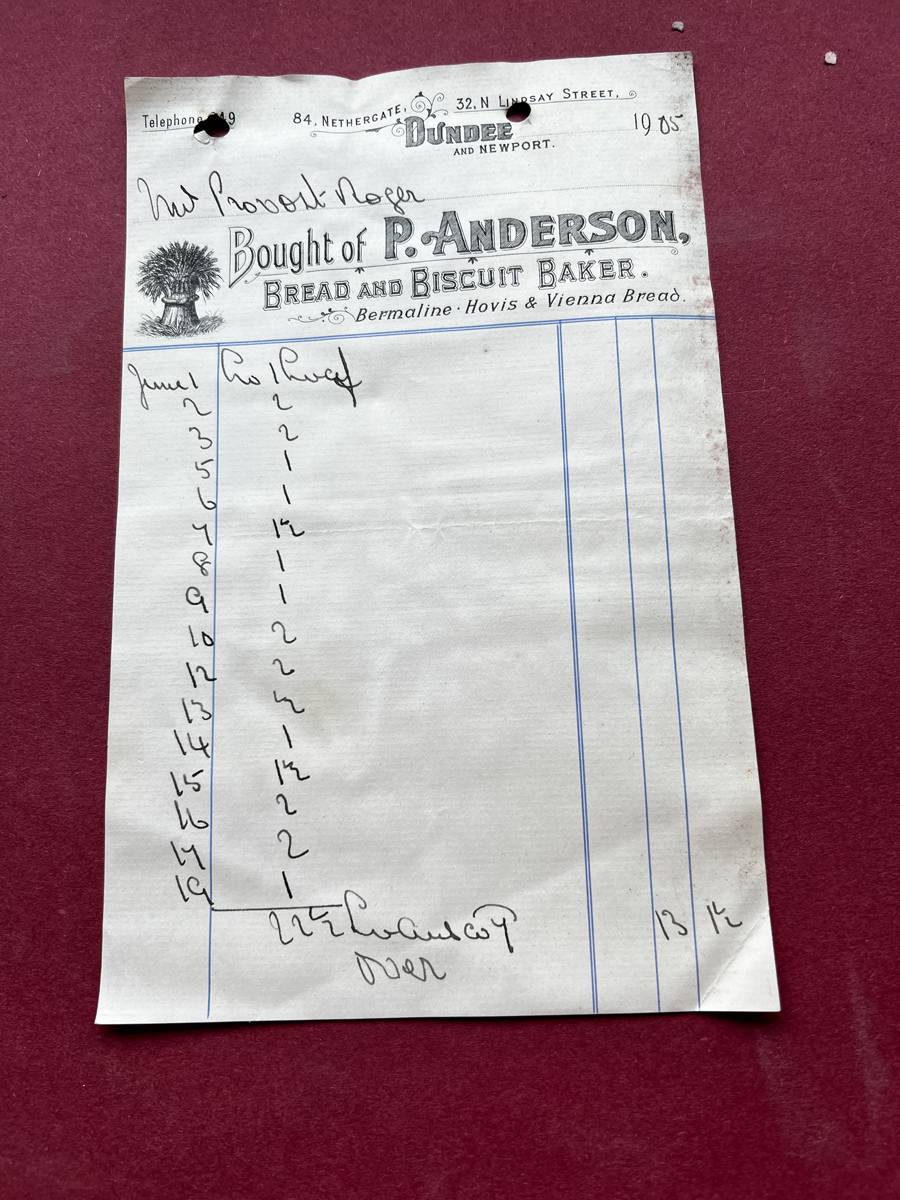 Telephone
84, NETHERGATE, 32, N LINDSAY STREET,
DUNDEE
AND NEWPORT.
1905
Provost Roger
Bought of P. ANDERSON,
BREAD AND BISCUIT BAKER.
Bermaline · Hovis & Vienna Bread.
June 1 To 1 Loaf
2 2
3 2
5 1
6 1
7 1½
8 1
9 1
10 2
12 2
13 ½
14 1
15 1½
16 2
17 2
19 1
22½ Loaves @ 7 13 1½
Over